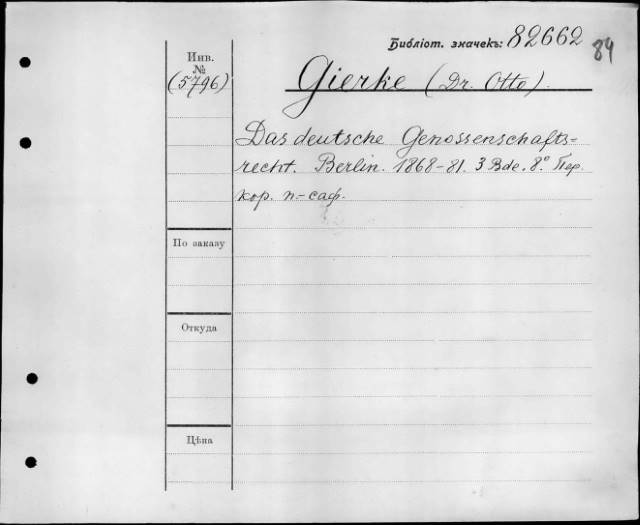 Библіот. значекъ: 82662
84
Инв.
№
(5796)
Gierke (Dr. Otto).
Das deutsche Genossenschafts-
recht. Berlin. 1868-81. 3 Bde. 8º. Пер.
кор. п.-саф.
По заказу
Откуда
Цѣна